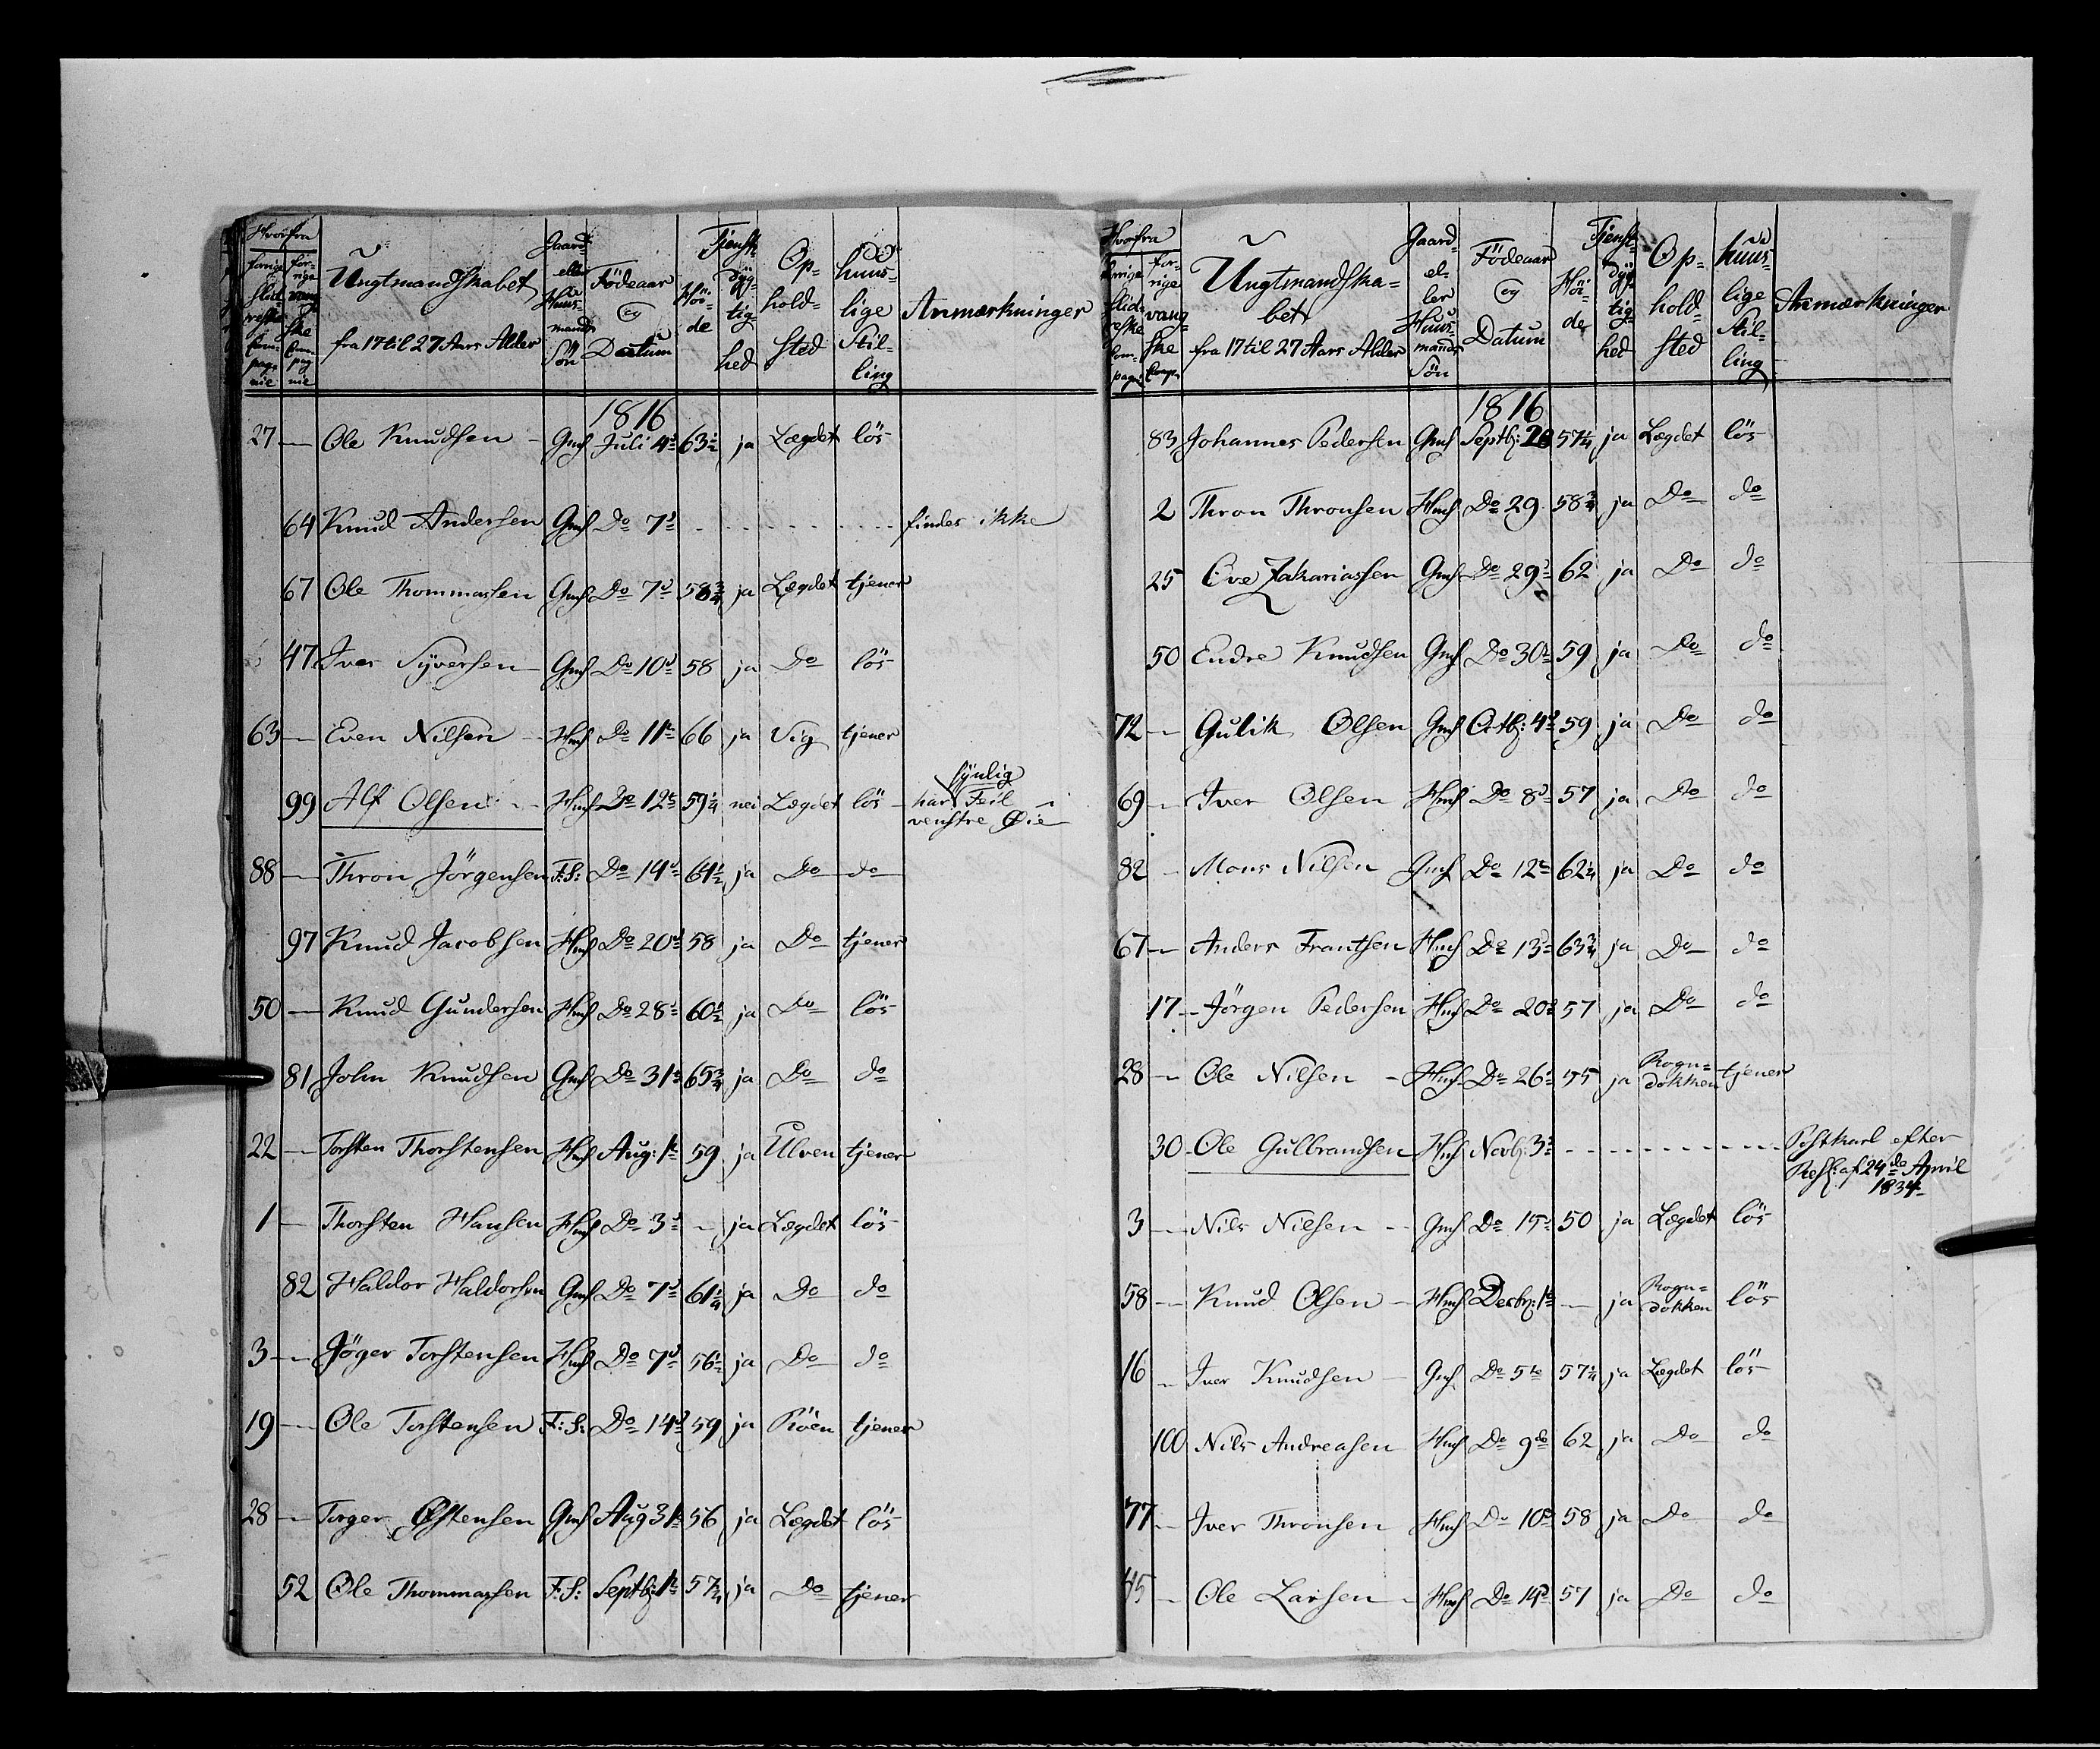 Hvorfra
forrige Slidreske Compagnie
forrige vangske Compagnie
Ungtmandskabet fra 17 til 27 Aars Alder
Gaard eller Huusmands Sön
Födeaar og Datum
Höide
Tjenstdygtighed
Opholdsted
huuslige Stilling
Anmærkninger
1816
27 — Ole Knudsen - Gms Juli 4de 63½ ja Lægdet lös
64 Knud Andersen Gms Do 7de - - - - - - findes ikke
67 Ole Thommassen Gms Do 7de 58¾ ja Lægdet tjener
47 Iver Syversen - Gms Do 10de 58 ja Do lös
63 — Even Nilsen - Hms Do 11te 66 ja Vig tjener
99 Alf Olsen - - Hms Do 12te 59¼ nei Lægdet lös - har synlig Feil i venstre Øie
88 — Thron Jörgensen F:S: Do 14de 64½ ja Do do
97 Knud Jacobsen Hms Do 20de 58 ja Do tjener
50 — Knud Gundersen Hms Do 28de 60½ ja Do lös
81 John Knudsen Gms Do 31te 65¾ ja Do do
22 — Torsten Thorstensen Hms Aug: 1te 59 ja Ulven tjener
1 — Thorsten Hansen Hms Do 3die - ja Lægdet lös
82 Haldor Haldorsen Gms Do 7de 61¼ ja Do do
3 — Jöger Torstensen Hms Do 7de 56½ ja Do do
19 — Ole Torstensen F:S: Do 14de 59 ja Röen tjener
28 — Torger Østensen Gms Aug 31te 56 ja Lægdet lös
52 Ole Thommassen F:S: Septbr: 1te 57¾ ja Do tjener
Hvorfra
forrige Slidreske Compagn:
forrige vangske Comp:
Ungtmandskabet fra 17 til 27 Aars Alder
Gaard eller Huusmands Sön
Födeaar og Datum
Höide
Tjenstdygtighed
Opholdsted
huuslige Stilling
Anmærkninger
1816
83 Johannes Pedersen Gms Septbr: 28 57¼ ja Lægdet lös
2 Thron Thronsen Hms Do 29 58¾ ja Do do
25 Ove Zakariassen Gms Do 29de 62 ja Do do
50 Endre Knudsen Gms Do 30te 59 ja Do do
72 — Gulik Olsen Gms Octbr: 4de 59 ja Do do
69 — Iver Olsen Hms Do 8de 57 ja Do do
82 - Mons Nilsen Gms Do 12te 62¼ ja Do do
67 — Anders Frantsen Hms Do 13de 63¾ ja Do do
17 - Jörgen Pedersen Hms Do 20de 57 ja Do do
28 — Ole Nilsen - Hms Do 26de 55 ja Rogndokken tjener
30 - Ole Gulbrandsen Hms Novbr: 3die - - - - - - Postkarl efter Resl: af 24de April 1834
3 — Nils Nielsen - - Gms Do 15de 50 ja Lægdet lös
58 — Knud Olsen - Hms Decbr: 1te — ja Rogndokken lös
16 - Iver Knudsen - Gms Do 5te 57¼ ja Lægdet lös
100 Nils Andreasen Hms Do 9de 62 ja Do do
77 - Iver Thronsen Hms Do 10de 58 ja Do do
45 - Ole Larsen - Hms Do 14de 57 ja Do do